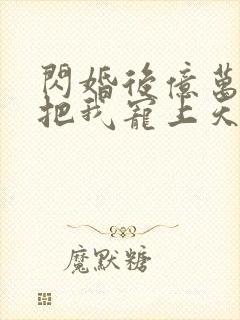 閃婚後億萬
把我寵上天
魔默糖